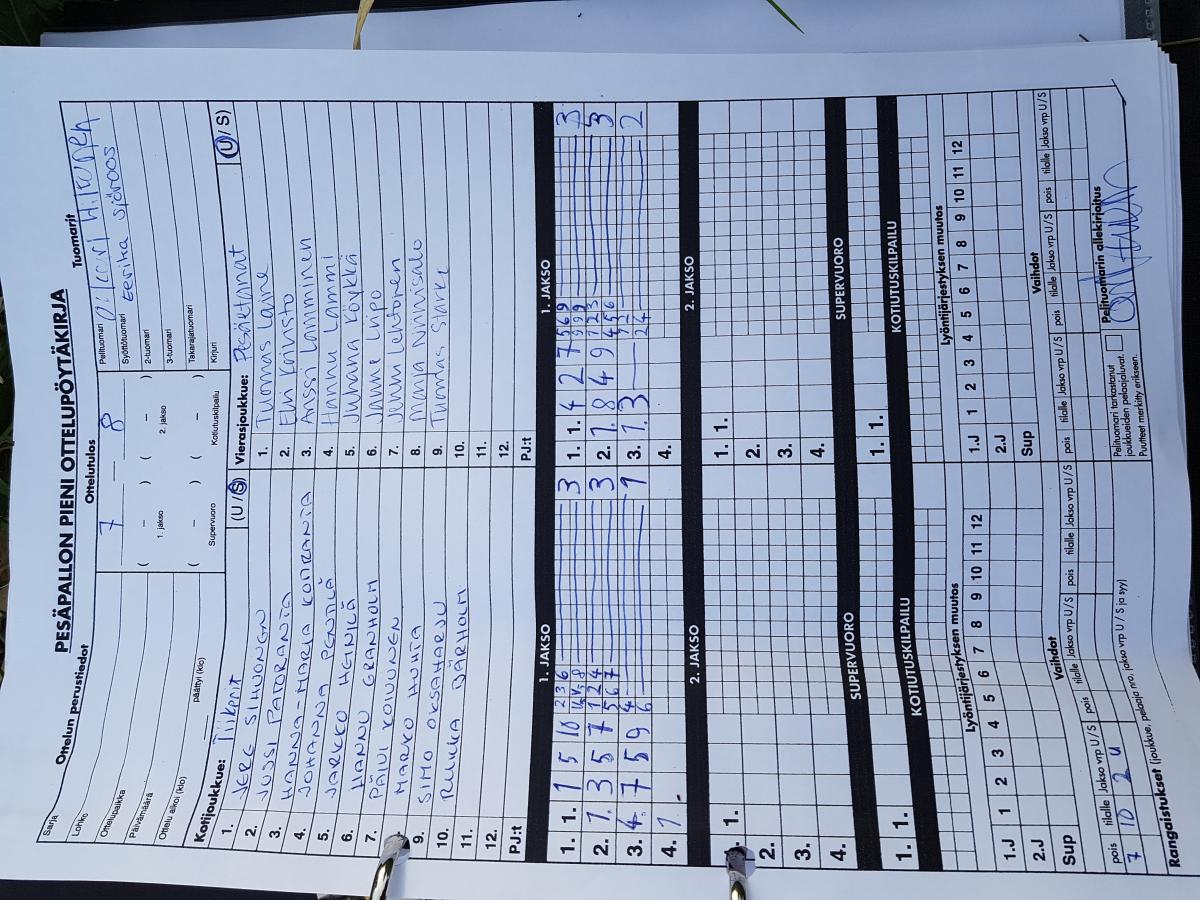 PESÄPALLON PIENI OTTELUPÖYTÄKIRJA
Ottelun perustiedot
Ottelutulos
Tuomarit
Sarja
Lohko
Ottelupaikka
Päivämäärä
Ottelu alkoi (klo)
päättyi (klo)
7 – 8
( – ) ( – )
1. jakso 2. jakso
( – ) ( – )
Supervuoro Kotiutuskilpailu
Pelituomari
Syöttötuomari Eerika Sjöroos
2-tuomari
3-tuomari
Takarajatuomari
Kirjuri
Kotijoukkue: Tiikerit (U / S)
1. VERE SIHVONEN
2. JUSSI PATORANTA
3. HANNA-MARIA KORRANTA
4. JOHANNA PENTTILÄ
5. JARKKO HEINILÄ
6. HANNU GRANHOLM
7. PÄIVI KOIVUNEN
8. MARKO HUHTA
9. SIMO OKSAHARJU
10. RIIKKA DÄRHOLM
11.
12.
PJ:t
Vierasjoukkue: Pesäettanat (U / S)
1. Tuomas Laine
2. Elli Koivisto
3. Anssi Lamminen
4. Hannu Lammi
5. Juhana Köykkä
6. Janne Liipo
7. Jenni Lehtonen
8. Marja Niinisalo
9. Tuomas Slark
10.
11.
12.
PJ:t
1. JAKSO 1. JAKSO
1. 1. 1 5 10 3
2. 1. 3 5 7 3
3. 4. 7 5 9 1
4. 1.
1. 1. 4 2 7 3
2. 1. 8 4 9 3
3. 1. 3 2
4.
2. JAKSO 2. JAKSO
1. 1.
2.
3.
4.
1. 1.
2.
3.
4.
SUPERVUORO SUPERVUORO
1. 1.
1. 1.
KOTIUTUSKILPAILU KOTIUTUSKILPAILU
Lyöntijärjestyksen muutos
1.J 1 2 3 4 5 6 7 8 9 10 11 12
2.J
Sup
Lyöntijärjestyksen muutos
1.J 1 2 3 4 5 6 7 8 9 10 11 12
2.J
Sup
Vaihdot
pois tilalle Jakso vrp U/S pois tilalle Jakso vrp U/S pois tilalle Jakso vrp U/S
7 10 2 U
Vaihdot
pois tilalle Jakso vrp U/S pois tilalle Jakso vrp U/S pois tilalle Jakso vrp U/S
Rangaistukset (joukkue, pelaaja nro, jakso vrp U / S ja syy)
Pelituomari tarkastanut
joukkueiden pelaajaluvat.
Puutteet merkitty erikseen.
Pelituomarin allekirjoitus